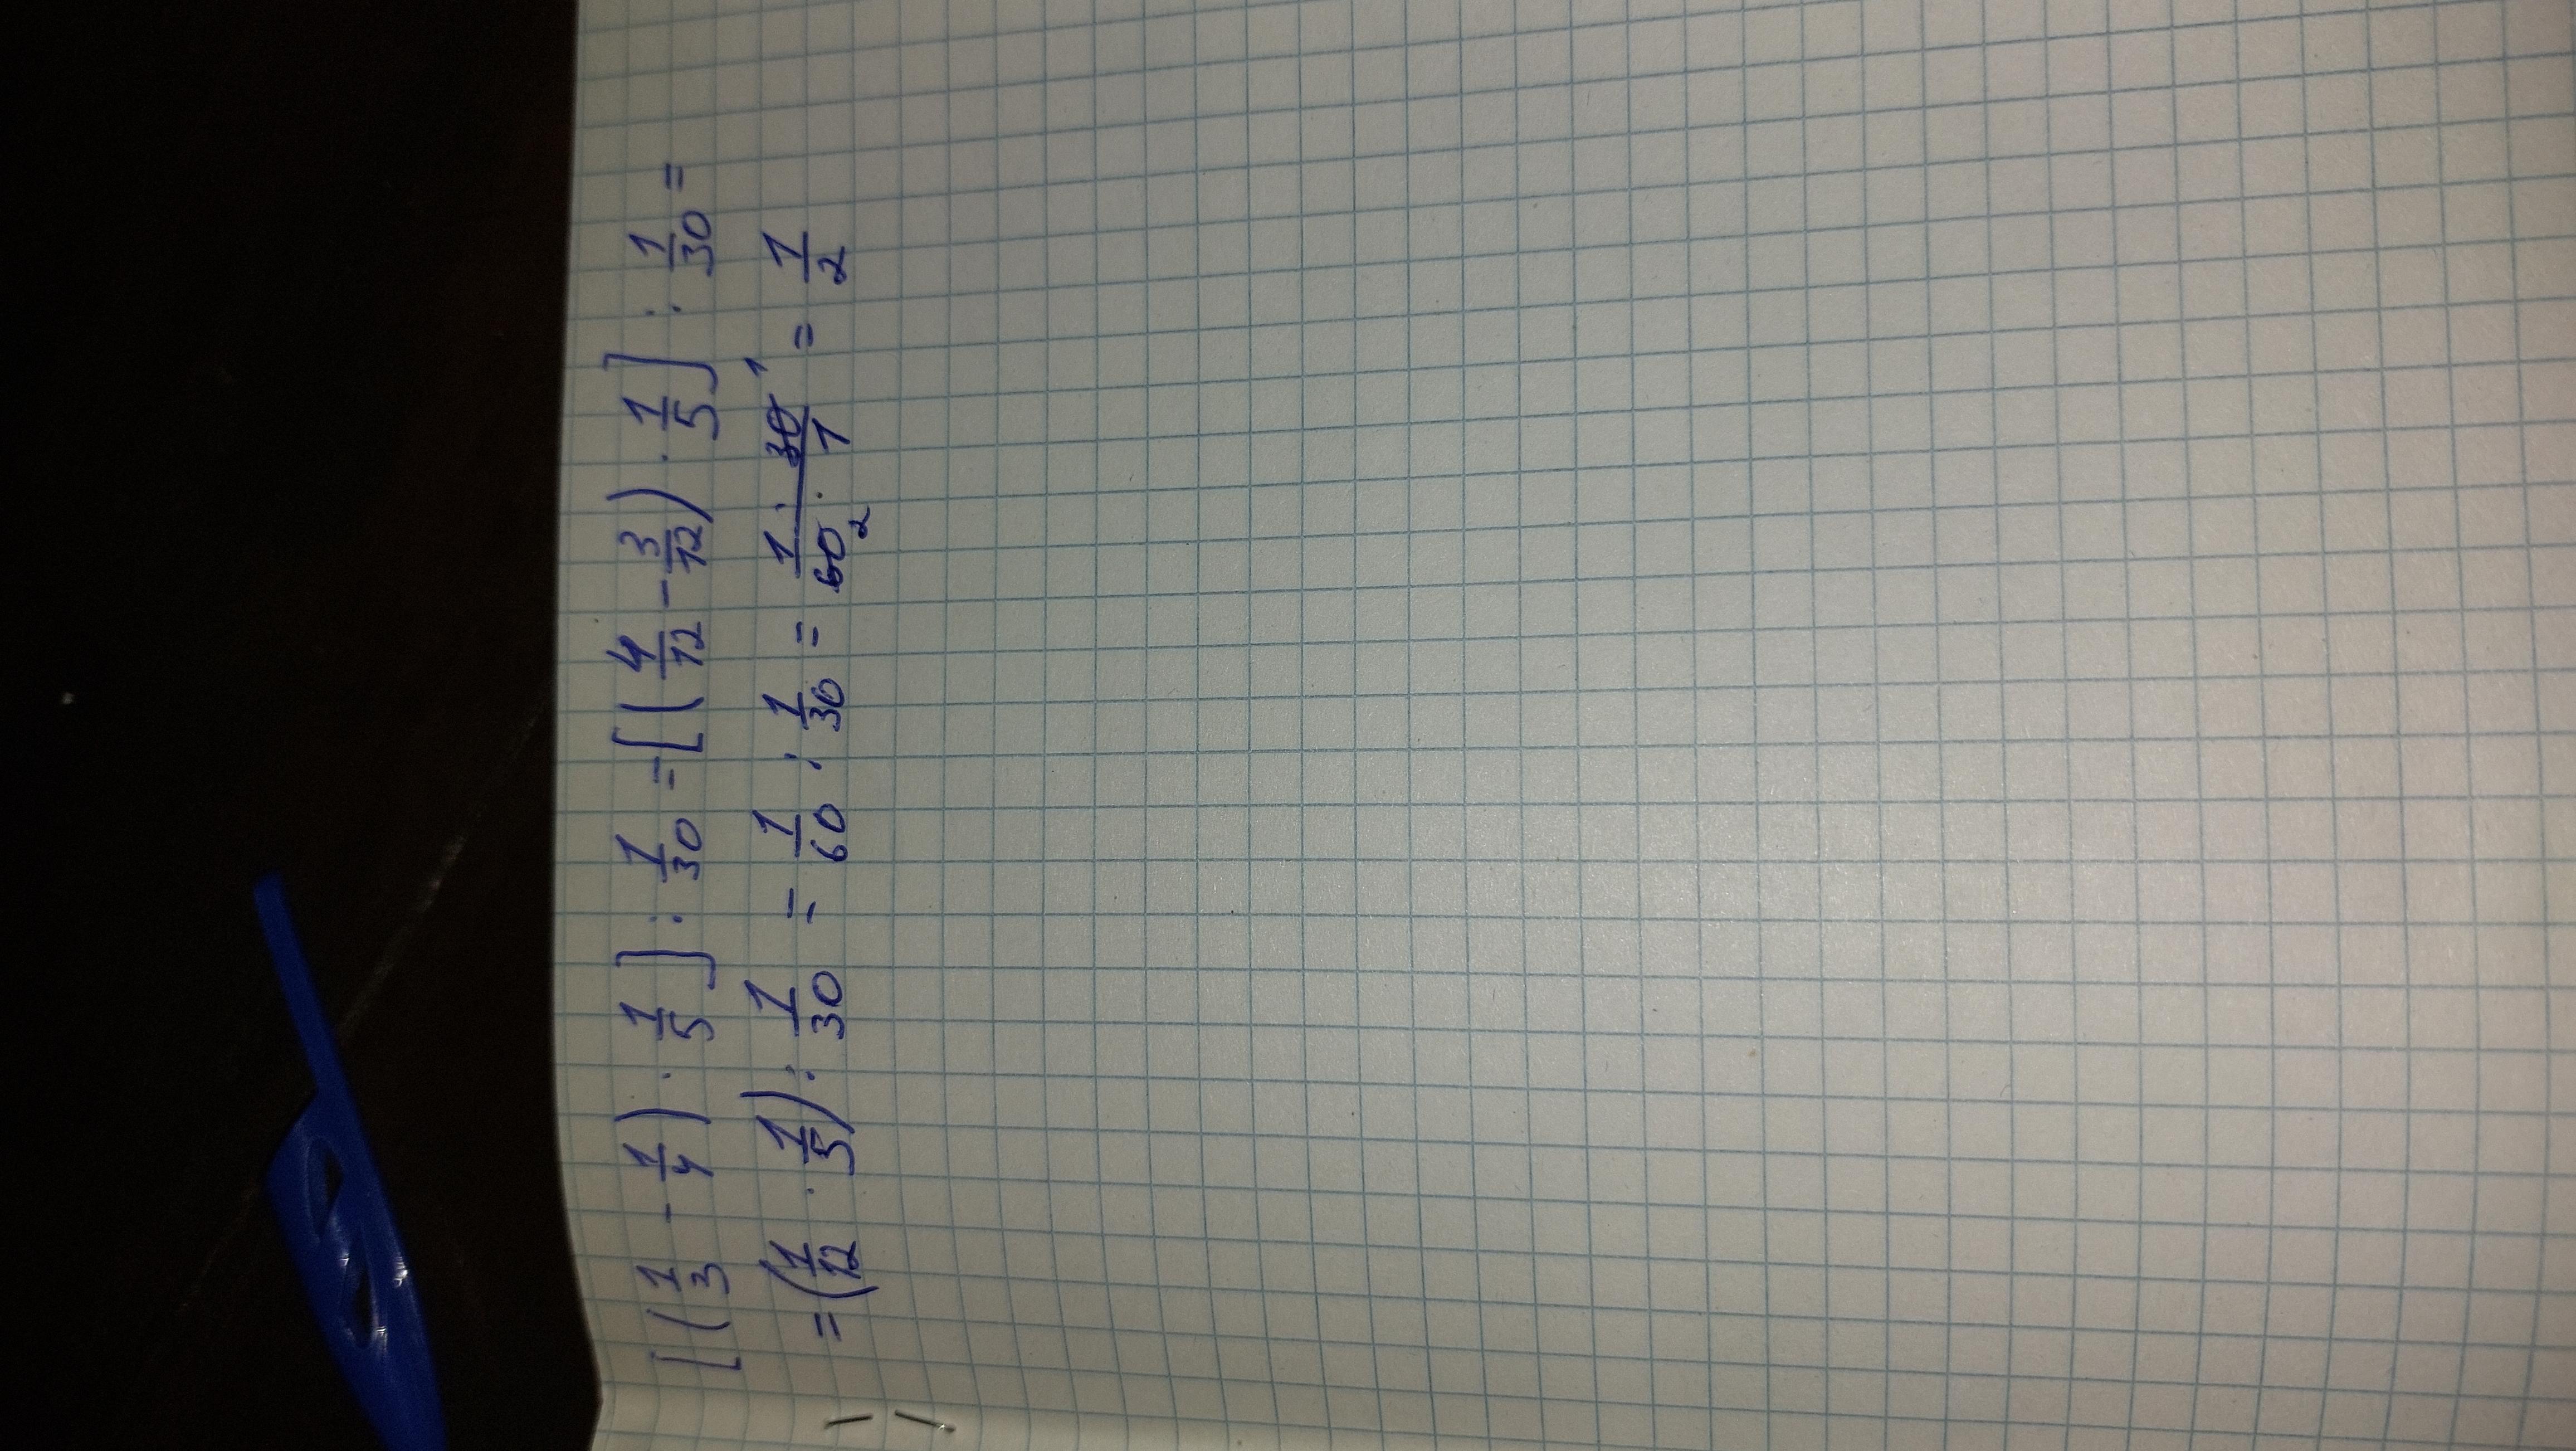 [(1/3 - 1/4) · 1/5] : 1/30 = [(4/12 - 3/12) · 1/5] : 1/30 =
= (1/12 · 1/5) : 1/30 = 1/60 : 1/30 = 1 · 30 1/60 2 · 1 = 1/2